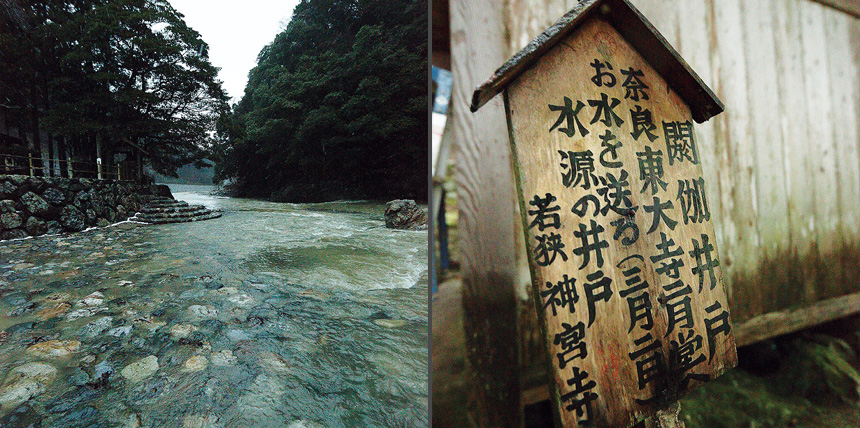 閼伽井戸
奈良東大寺二月堂
お水を送る(三月二日)
水源の井戸
若狭神宮寺